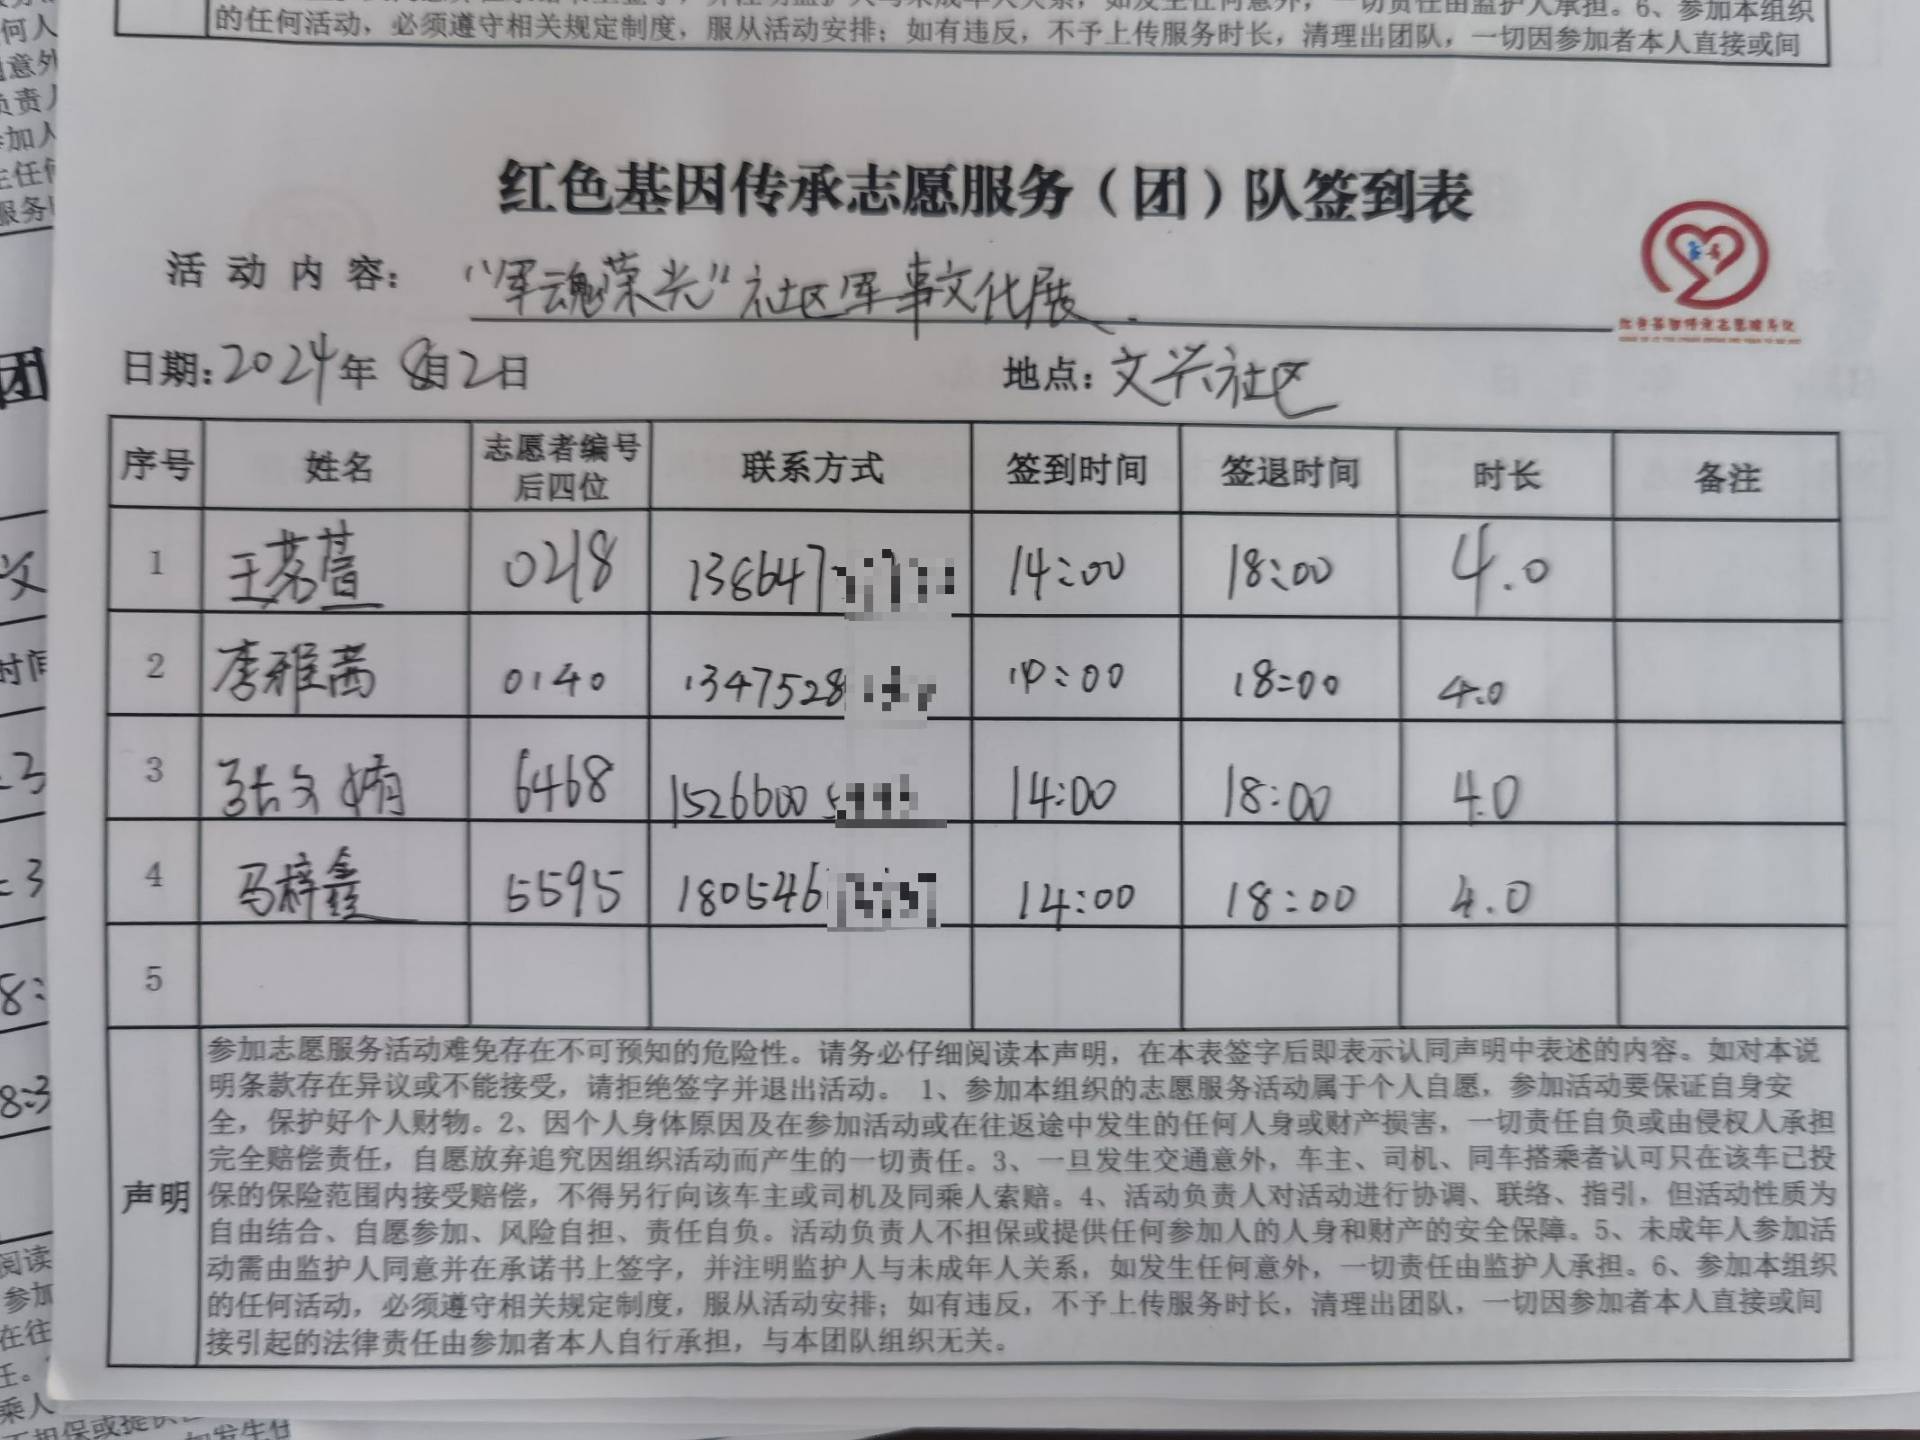 的任何活动，必须遵守相关规定制度，服从活动安排；如有违反，不予上传服务时长，清理出团队，一切因参加者本人直接或间
红色基因传承志愿服务（团）队签到表
活动内容： “军魂荣光”社区军事文化展.
日期：2024年8月2日 地点：文兴社区
序号 姓名 志愿者编号后四位 联系方式 签到时间 签退时间 时长 备注
1 王茗萱 0218 138647 14:00 18:00 4.0
2 李雅茜 0140 1347528 14:00 18:00 4.0
3 张文娟 6468 15266005 14:00 18:00 4.0
4 马梓鑫 5595 180546 14:00 18:00 4.0
5
声明
参加志愿服务活动难免存在不可预知的危险性。请务必仔细阅读本声明，在本表签字后即表示认同声明中表述的内容。如对本说
明条款存在异议或不能接受，请拒绝签字并退出活动。 1、参加本组织的志愿服务活动属于个人自愿，参加活动要保证自身安
全，保护好个人财物。2、因个人身体原因及在参加活动或在往返途中发生的任何人身或财产损害，一切责任自负或由侵权人承担
完全赔偿责任，自愿放弃追究因组织活动而产生的一切责任。3、一旦发生交通意外，车主、司机、同车搭乘者认可只在该车已投
保的保险范围内接受赔偿，不得另行向该车主或司机及同乘人索赔。4、活动负责人对活动进行协调、联络、指引，但活动性质为
自由结合、自愿参加、风险自担、责任自负。活动负责人不担保或提供任何参加人的人身和财产的安全保障。5、未成年人参加活
动需由监护人同意并在承诺书上签字，并注明监护人与未成年人关系，如发生任何意外，一切责任由监护人承担。6、参加本组织
的任何活动，必须遵守相关规定制度，服从活动安排；如有违反，不予上传服务时长，清理出团队，一切因参加者本人直接或间
接引起的法律责任由参加者本人自行承担，与本团队组织无关。